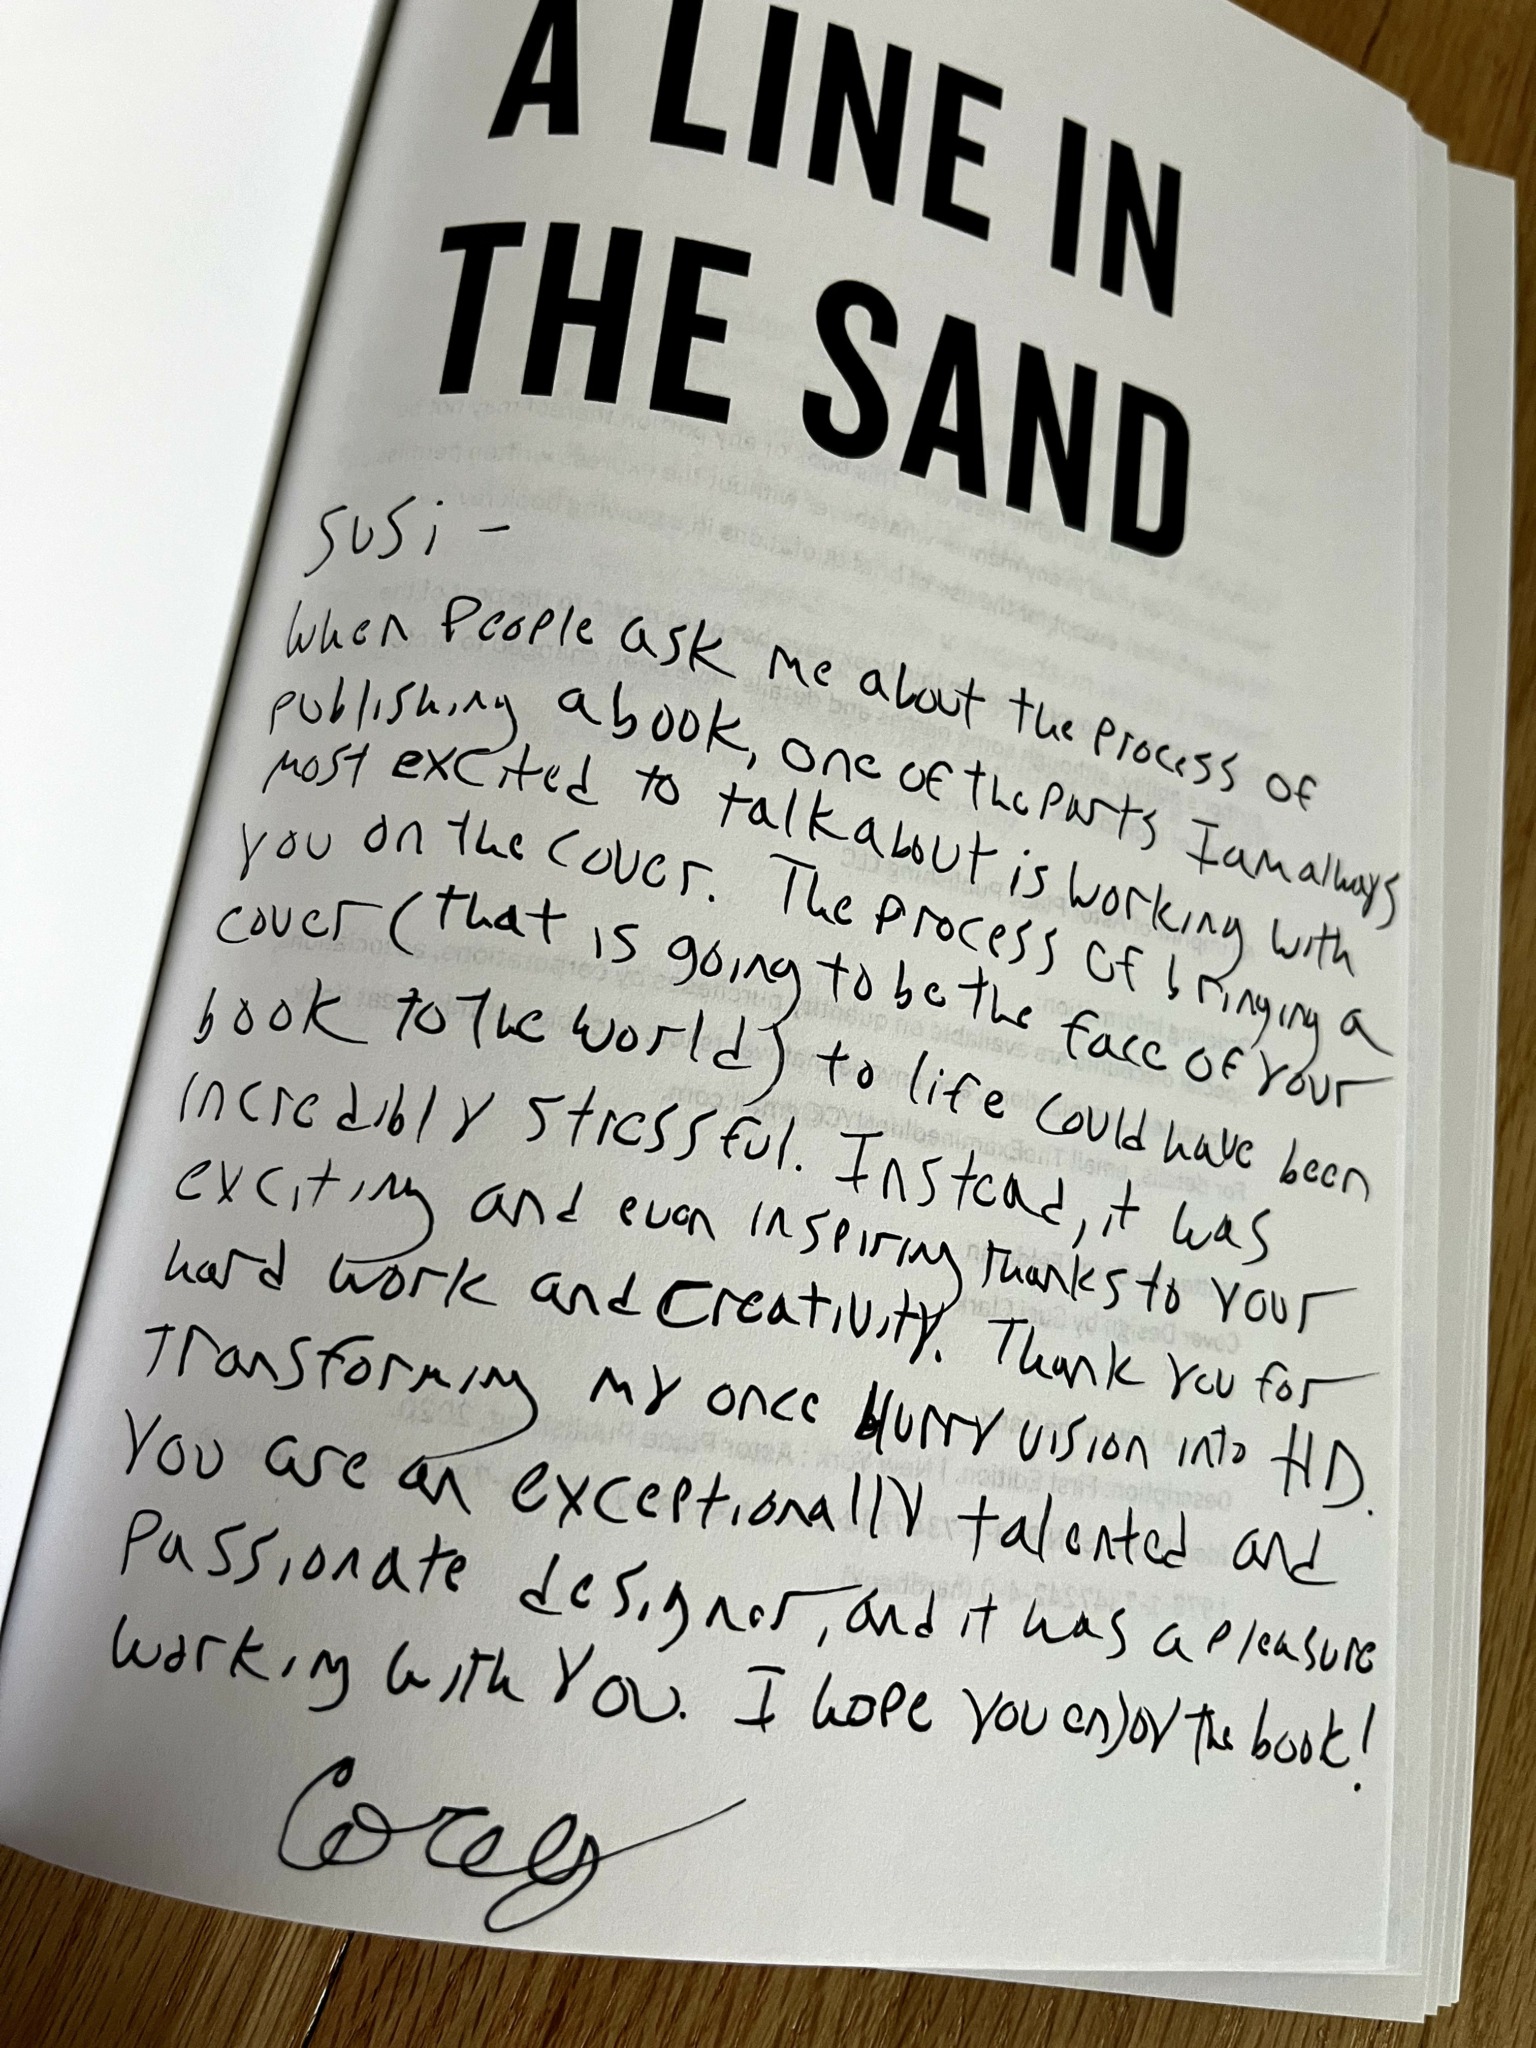 A LINE IN
THE SAND
Susi -
When People ask me about the process of
publishing a book, one of the parts I am always
most excited to talk about is working with
you on the cover. The process of bringing a
cover (that is going to be the face of your
book to the world) to life could have been
incredibly stressful. Instead, it was
exciting and even inspiring thanks to your
hard work and creativity. Thank you for
transforming my once blurry vision into HD.
You are an exceptionally talented and
passionate designer, and it was a pleasure
working with you. I hope you enjoy the book!
Corey